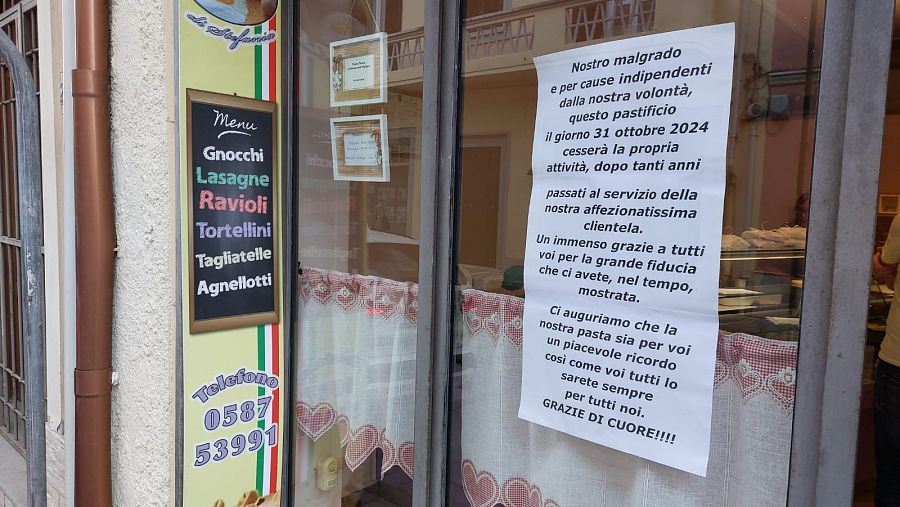 di Stefania
Menu
Gnocchi
Lasagne
Ravioli
Tortellini
Tagliatelle
Agnellotti
Telefono
0587
53991
Nostro malgrado
e per cause indipendenti
dalla nostra volontà,
questo pastificio
il giorno 31 ottobre 2024
cesserà la propria
attività, dopo tanti anni
passati al servizio della
nostra affezionatissima
clientela.
Un immenso grazie a tutti
voi per la grande fiducia
che ci avete, nel tempo,
mostrata.
Ci auguriamo che la
nostra pasta sia per voi
un piacevole ricordo
così come voi tutti lo
sarete sempre
per tutti noi.
GRAZIE DI CUORE!!!!